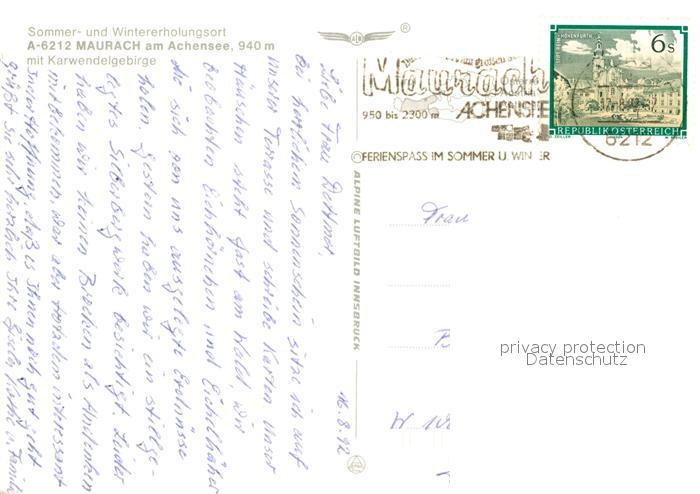 Sommer- und Wintererholungsort
A-6212 MAURACH am Achensee, 940 m
mit Karwendelgebirge
16.8.92
Liebe Frau
bei herrlichem Sonnenschein sitze ich auf
unserer Terasse und schreibe Karten. Unser
Häuschen steht fast am Wald, wir
beobachten Eichhörnchen und Eichelhäher
die sich von uns ausgelegte Erdnüsse
holen. Gestern haben wir ein stillge-
legtes Silberbergwerk besichtigt. Leider
haben wir keinen Brocken als Andenken
mitbekommen, war aber trotzdem interessant
In der Hoffnung, daß es Ihnen noch gut geht
grüßt Sie sehr herzlich Ihre Familie
ALPINE LUFTBILD INNSBRUCK
Maurach
ACHENSEE
950 bis 2300 m
FERIENSPASS IM SOMMER U. WINTER
6212
6 S
REPUBLIK ÖSTERREICH
Frau
W
privacy protection
Datenschutz